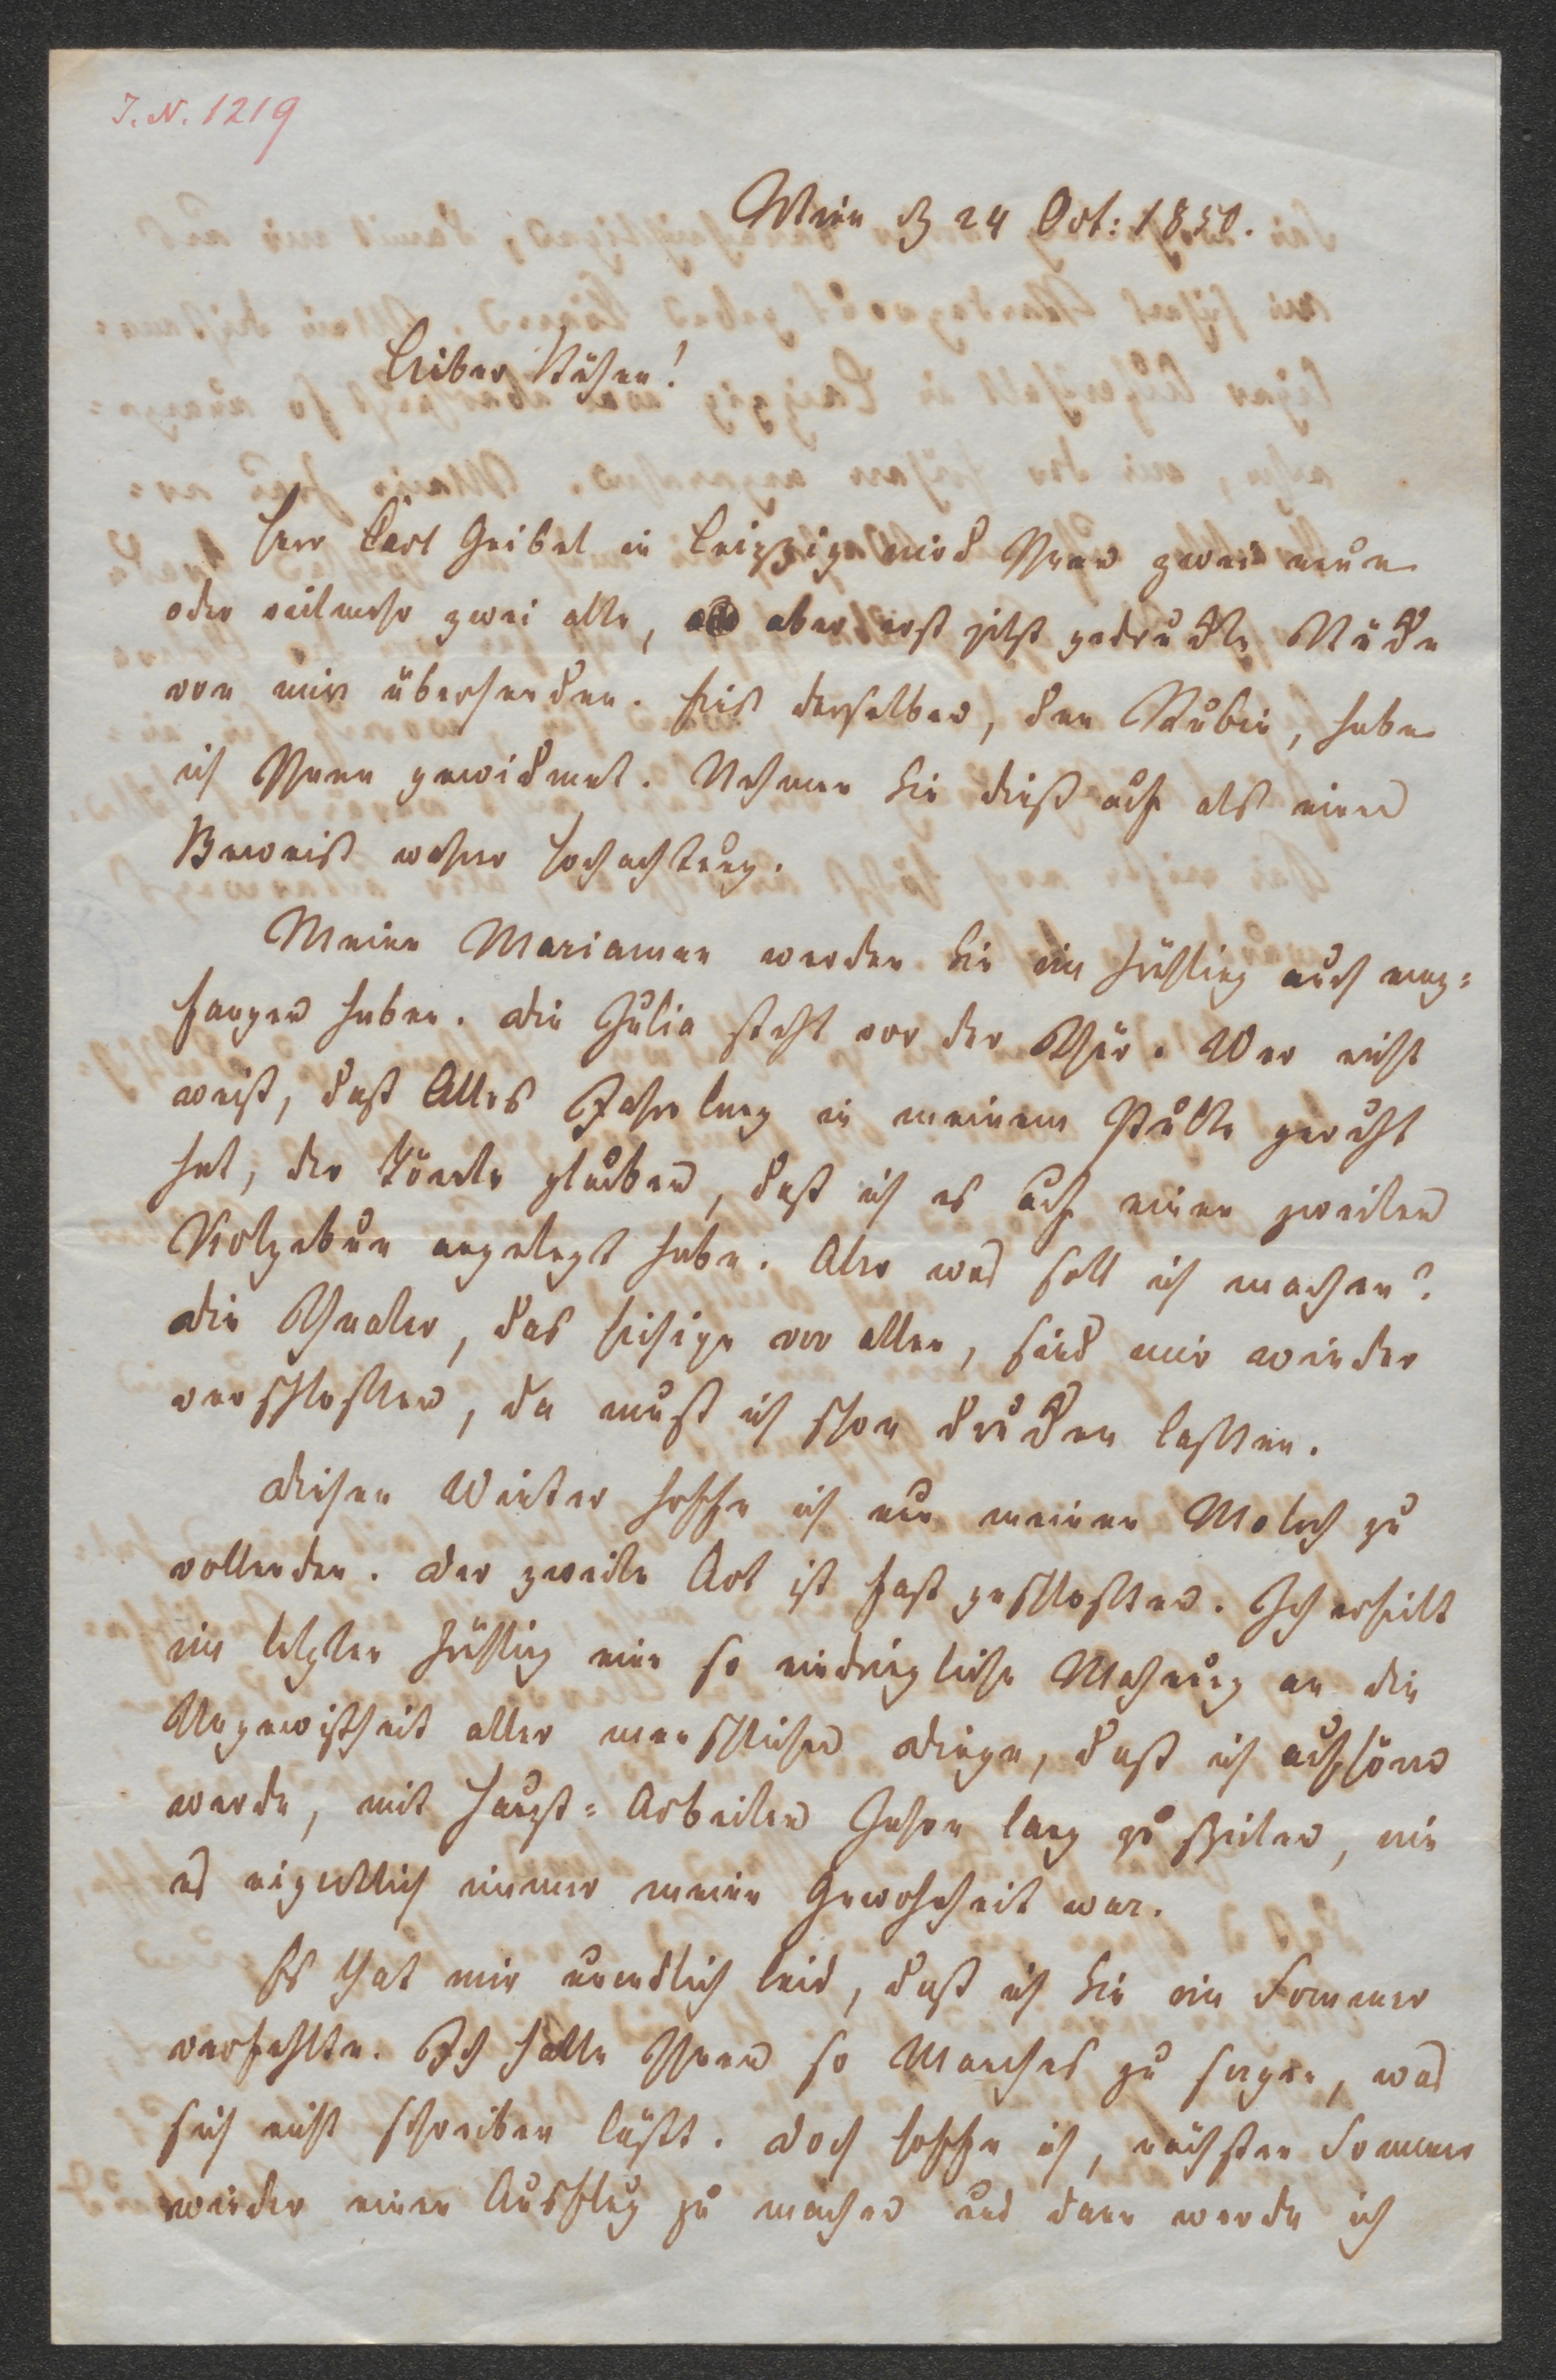 I. N. 1219
Wien d 24 Oct: 1850.
Lieber Kühne!
Herr Carl Geibel in Leipzig wird Ihnen zwei neue
oder vielmehr zwei alte, aber erst jetzt gedruckte Stücke
von mir übersenden. Eins derselben, den Rubin, habe
ich Ihnen gewidmet. Nehmen Sie dieß auf als einen
Beweiß wahrer Hochachtung.
Meine Mariamne werden Sie im Frühling auch emp=
fangen haben. Die Julia steht vor der Thür. Wer nicht
weiß, daß Alles Jahre lang in meinem Pulte geruht
hat, der könnte glauben, daß ich es auf einen zweiten
Kotzebue angelegt habe. Aber was soll ich machen?
Die Theater, das hiesige vor allen, sind mir wieder
verschlossen, da muß ich schon drucken lassen.
Diesen Winter hoffe ich nun meinen Moloch zu
vollenden. Der zweite Act ist fast geschlossen. Ich erhielt
im letzten Frühling eine so eindringliche Mahnung an die
Ungewißheit aller menschlichen Dinge, daß ich aufhören
werde, mit Haupt=Arbeiten Jahre lang zu spielen, wie
es eigentlich immer meine Gewohnheit war.
Es that mir unendlich leid, daß ich Sie im Sommer
verfehlte. Ich hatte Ihnen so Manches zu sagen, was
sich nicht schreiben läßt. Doch hoffe ich, nächsten Sommer
wieder einen Ausflug zu machen und dann werde ich